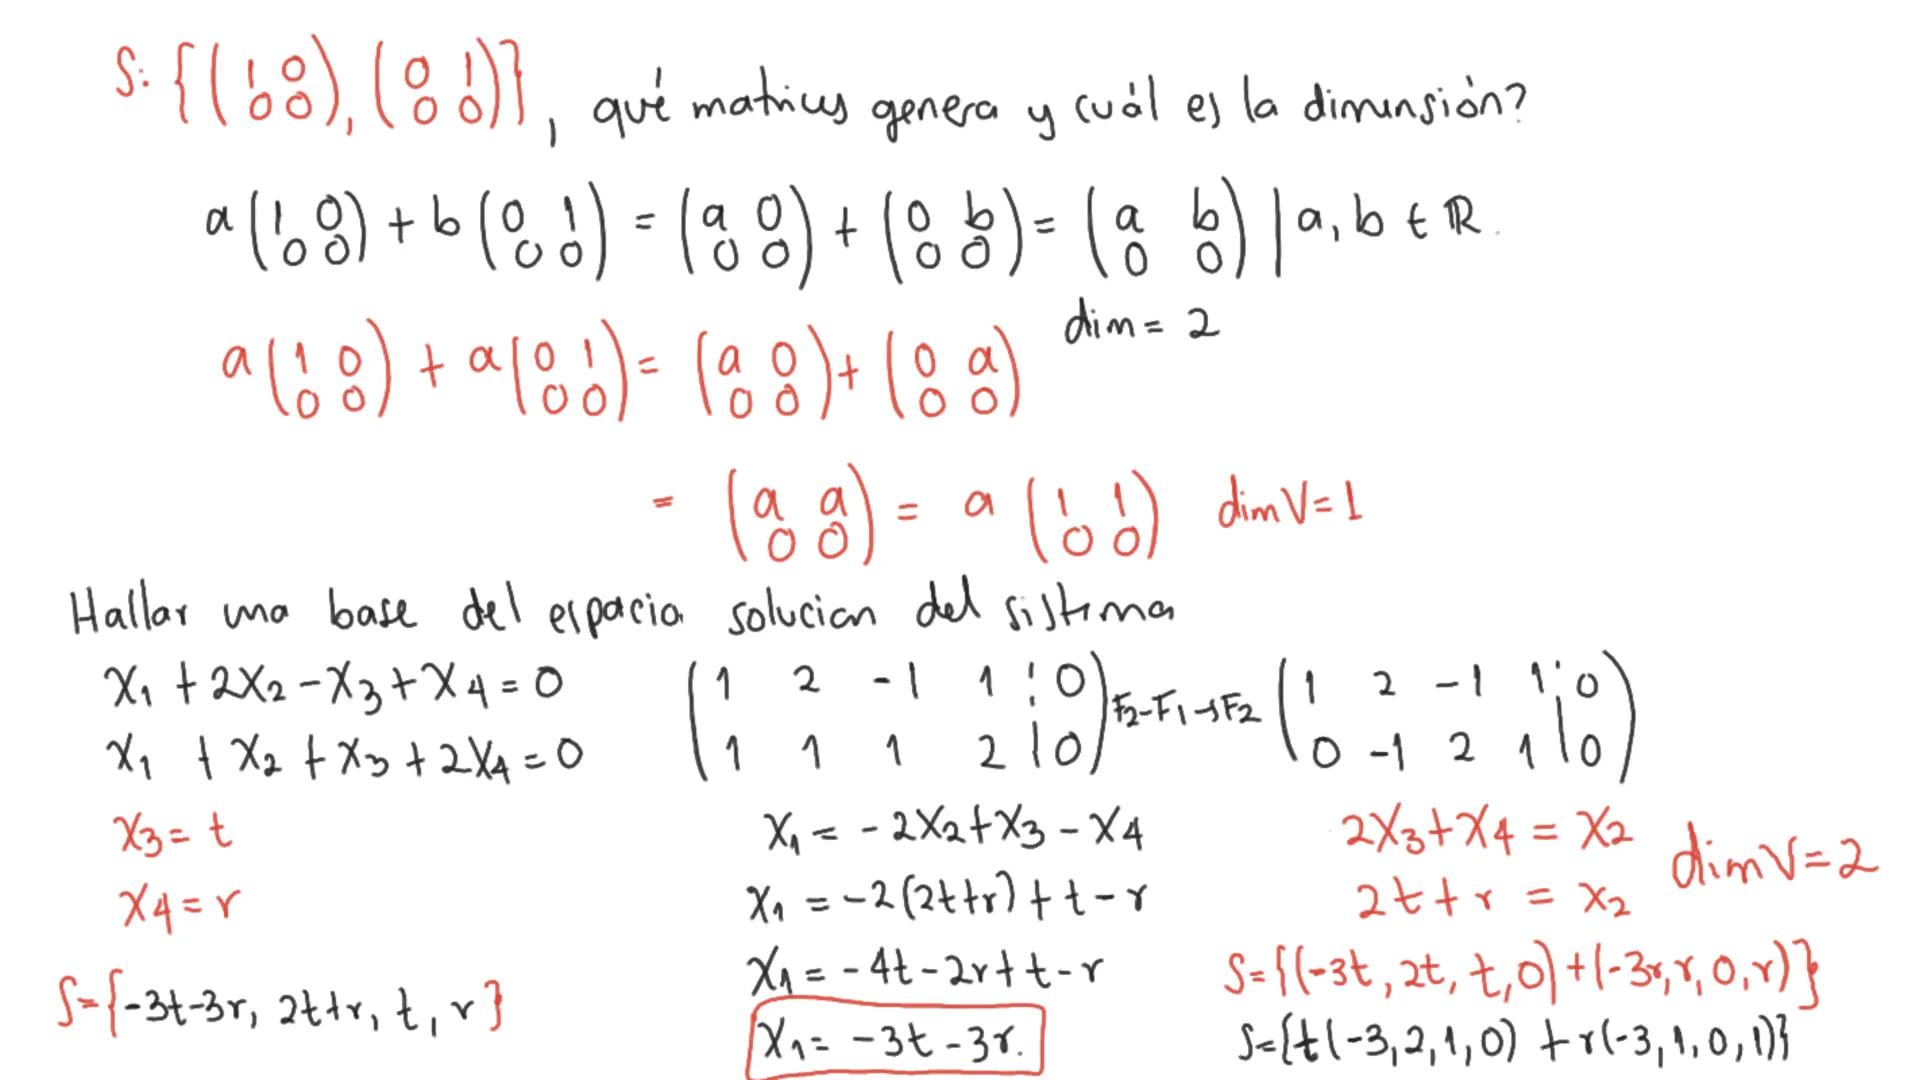 S: {(1 0 0 0), (0 1 0 0)}, qué matrices genera y cuál es la dimensión?
a(1 0 0 0) + b(0 1 0 0) = (a 0 0 0) + (0 b 0 0) = (a b 0 0) | a, b ∈ ℝ.
dim = 2
a(1 0 0 0) + a(0 1 0 0) = (a 0 0 0) + (0 a 0 0)
= (a a 0 0) = a (1 1 0 0) dim V = 1
Hallar una base del espacio solucion del sistema
x₁ + 2x₂ - x₃ + x₄ = 0
x₁ + x₂ + x₃ + 2x₄ = 0
(1 2 -1 1 | 0
1 1 1 2 | 0) F₂-F₁→F₂ (1 2 -1 1 | 0
0 -1 2 1 | 0)
x₃ = t
x₄ = r
S={-3t-3r, 2t+r, t, r}
x₁ = -2x₂+x₃-x₄
x₁ = -2(2t+r)+t-r
x₁ = -4t-2r+t-r
x₁ = -3t-3r.
2x₃+x₄ = x₂
2t+r = x₂
dim V=2
S={(-3t, 2t, t, 0)+(-3r, r, 0, r)}
S={t(-3,2,1,0) + r(-3,1,0,1)}